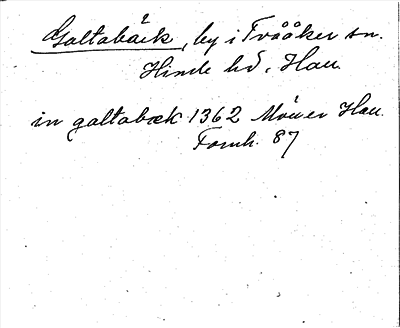 Galtabäck, by i Tvååker sn.
Himle hd, Hall.
in galtabæk 1362 Möller Hall.
Fornh. 87